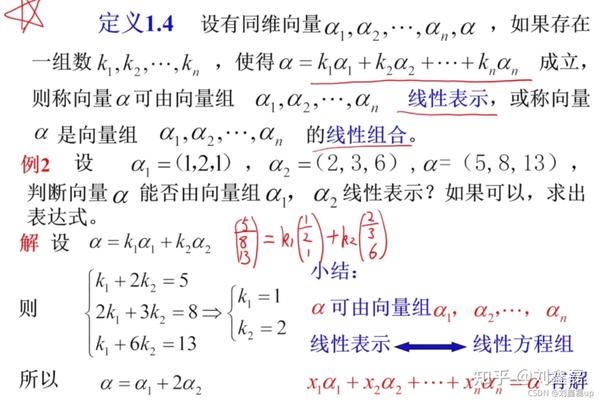 定义1.4 设有同维向量α₁,α₂,⋯,αₙ,α，如果存在
一组数k₁,k₂,⋯,kₙ，使得α=k₁α₁+k₂α₂+⋯+kₙαₙ 成立，
则称向量α可由向量组 α₁,α₂,⋯,αₙ 线性表示，或称向量
α 是向量组 α₁,α₂,⋯,αₙ 的线性组合。
例2 设 α₁=(1,2,1)，α₂=(2,3,6)，α=（5,8,13），
判断向量α 能否由向量组α₁，α₂线性表示？如果可以，求出
表达式。
解 设 α=k₁α₁+k₂α₂ (5 8 13)=k₁(1 2 1)+k₂(2 3 6)
小结：
则 {k₁+2k₂=5
2k₁+3k₂=8
k₁+6k₂=13 ⇒ {k₁=1
k₂=2
α可由向量组α₁，α₂,⋯，αₙ
线性表示 ⟷ 线性方程组
所以 α=α₁+2α₂ x₁α₁+x₂α₂+⋯+xₙαₙ=α 有解
知乎 @刘鑫磊
CSDN @刘鑫磊up